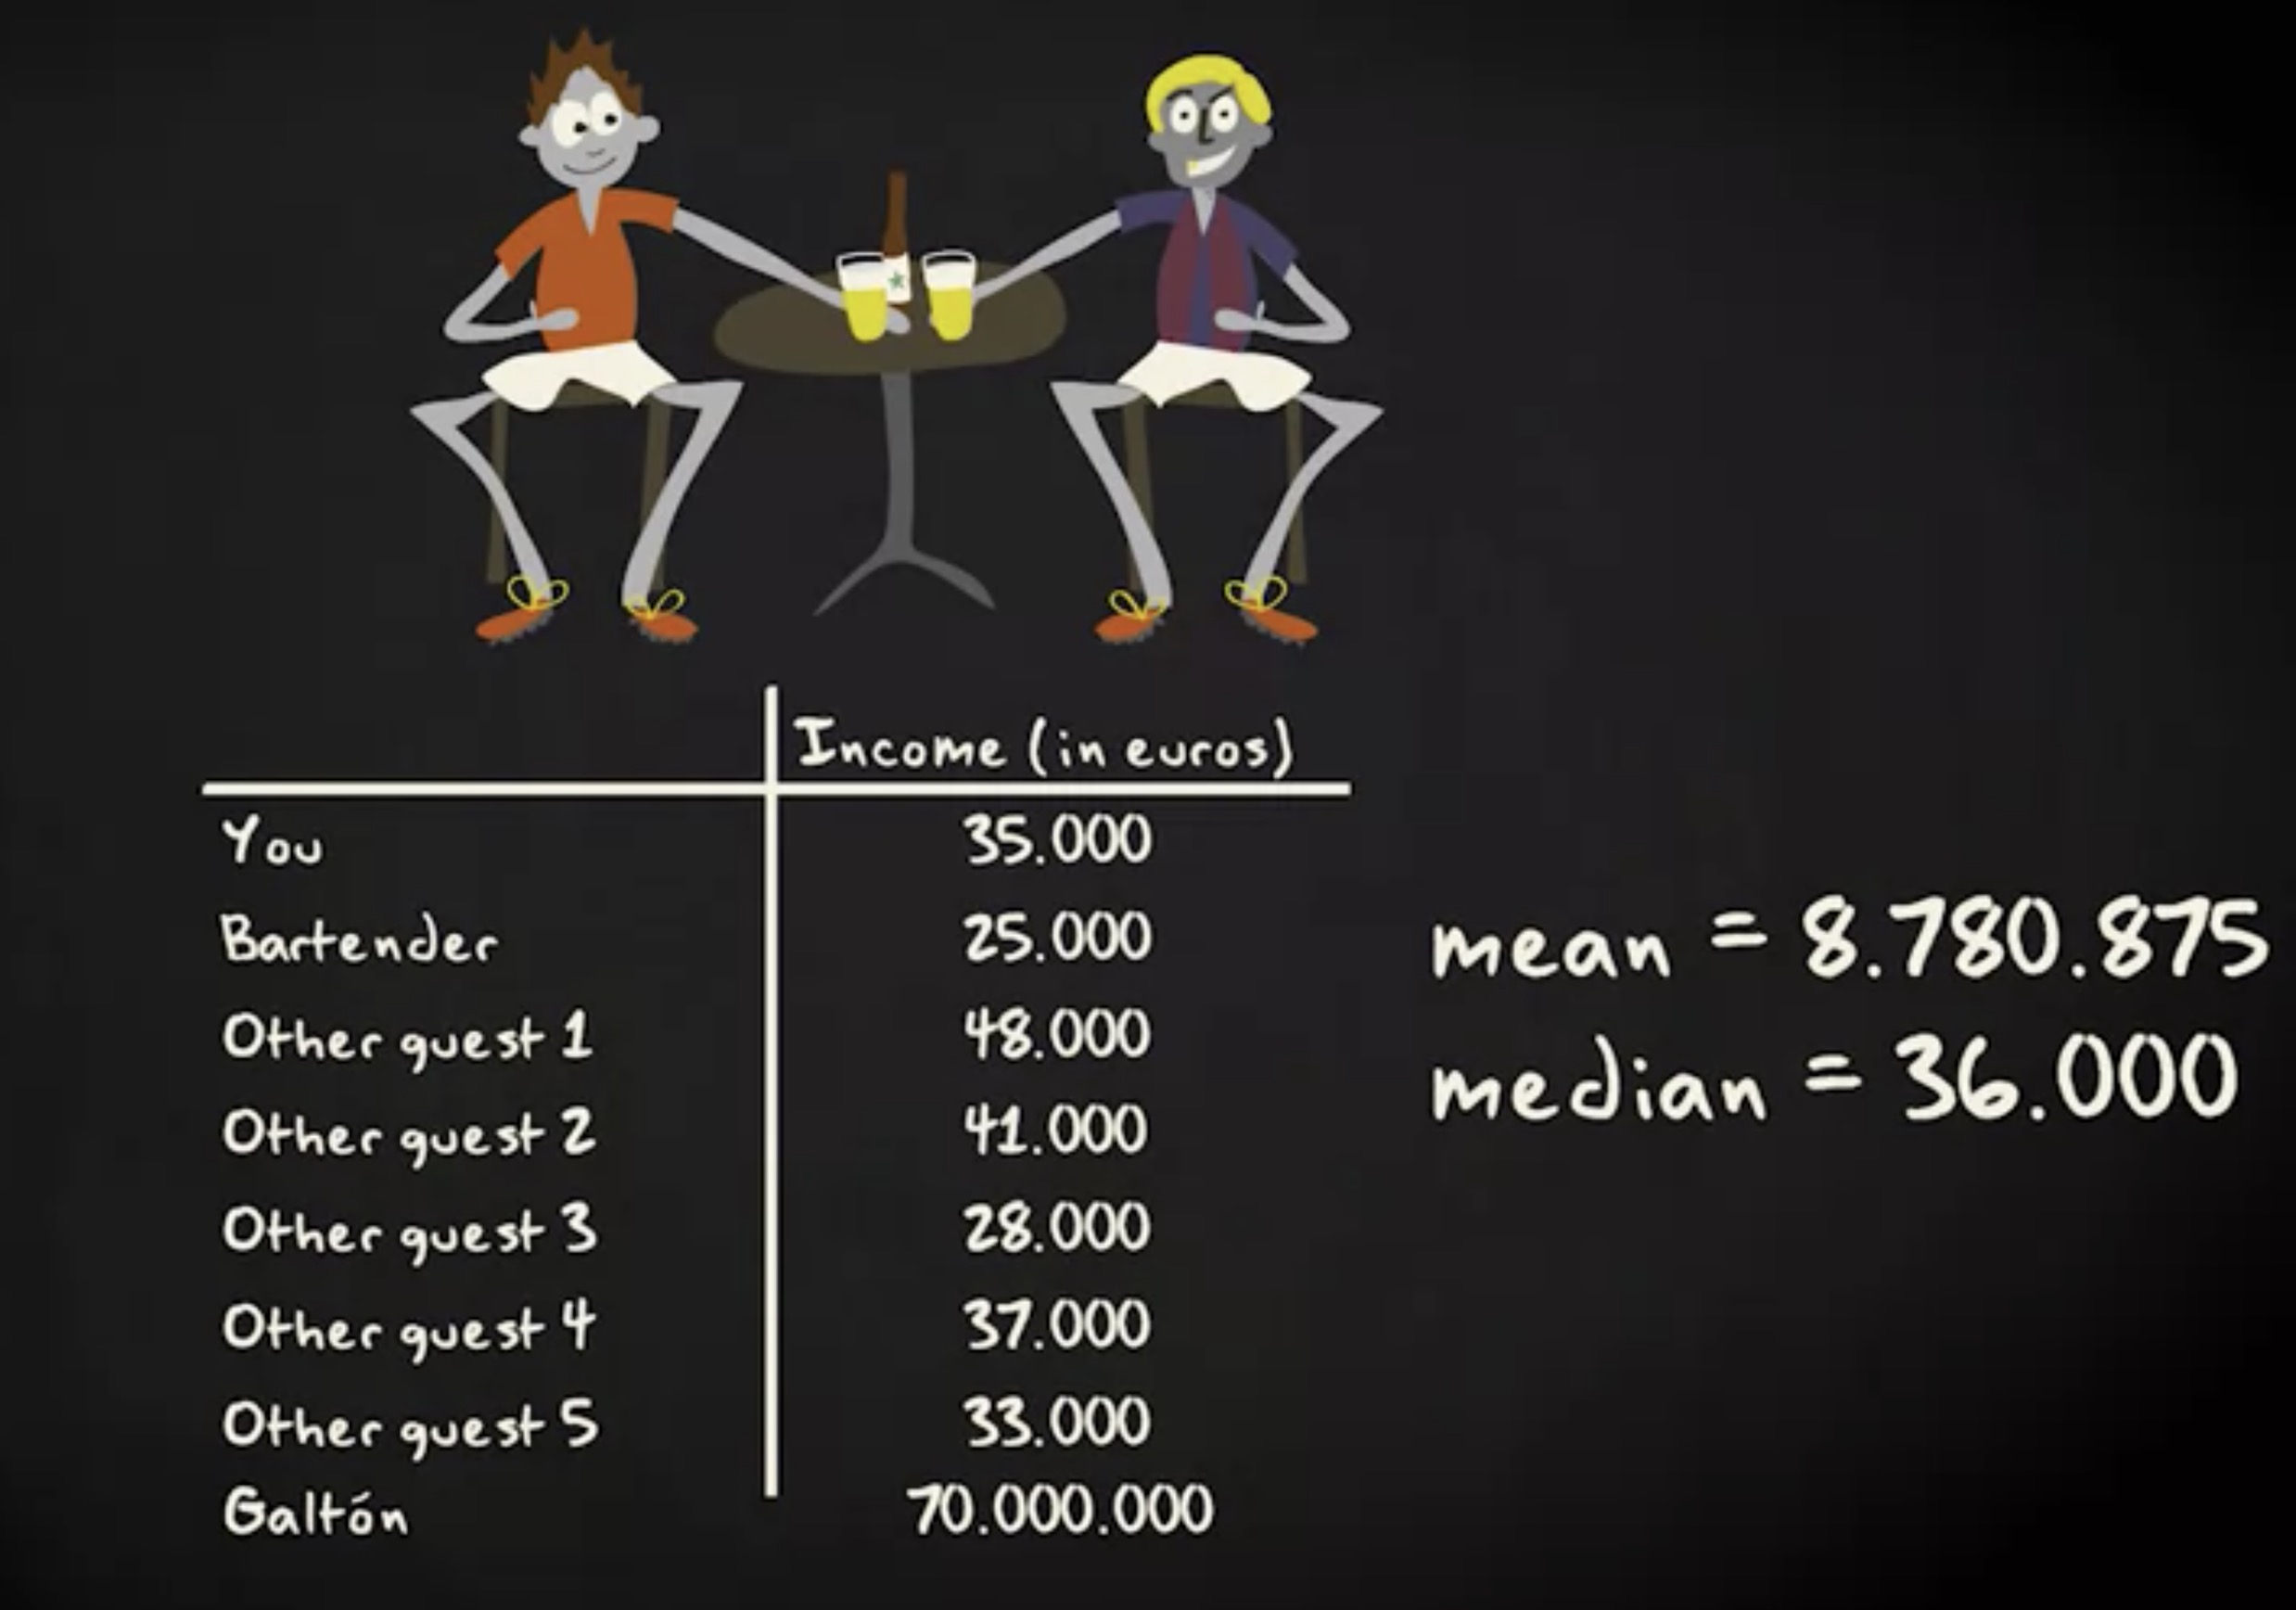 Income (in euros)
You 35.000
Bartender 25.000
Other guest 1 48.000
Other guest 2 41.000
Other guest 3 28.000
Other guest 4 37.000
Other guest 5 33.000
Galtón 70.000.000
mean = 8.780.875
median = 36.000